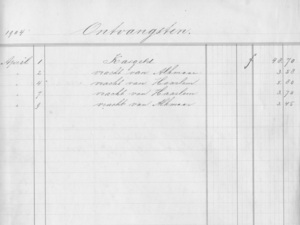 1904 Ontvangsten.
April 1 Kasgeld f
" 2 vracht van Alkmaar
" 4 vracht van Haarlem
" 7 vracht van Haarlem
" 8 vracht van Alkmaar